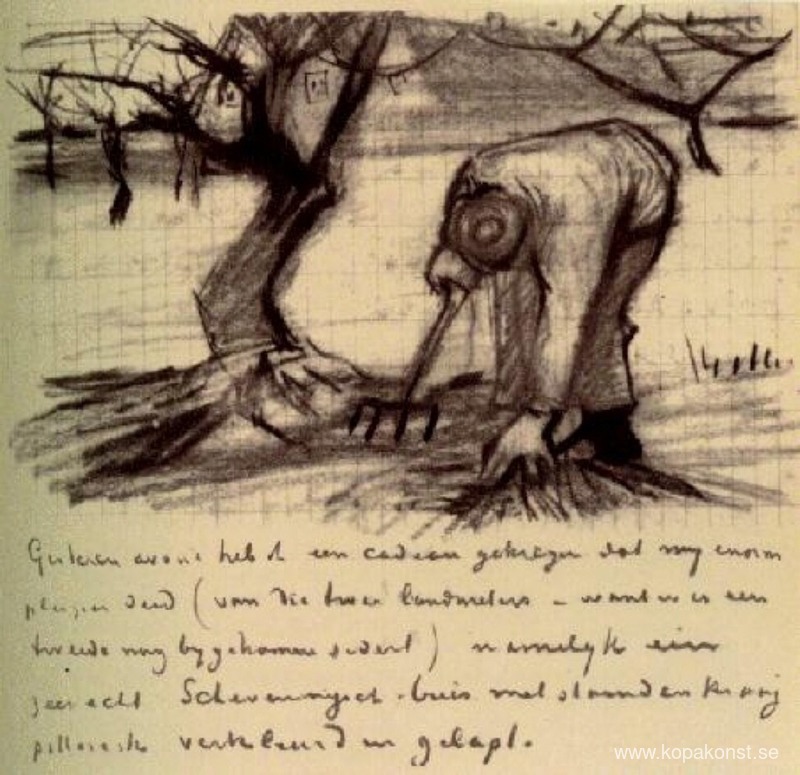 Gisteren avond heb ik een cadeau gekregen dat my enorm
pleizier deed (van die twee landmeters – want er is een
tweede nog bygekomen sedert) namelyk een
zeer echt Scheveningsch buis met staanden kraag
pittoresk verkleurd en gelapt.
www.kopakonst.se